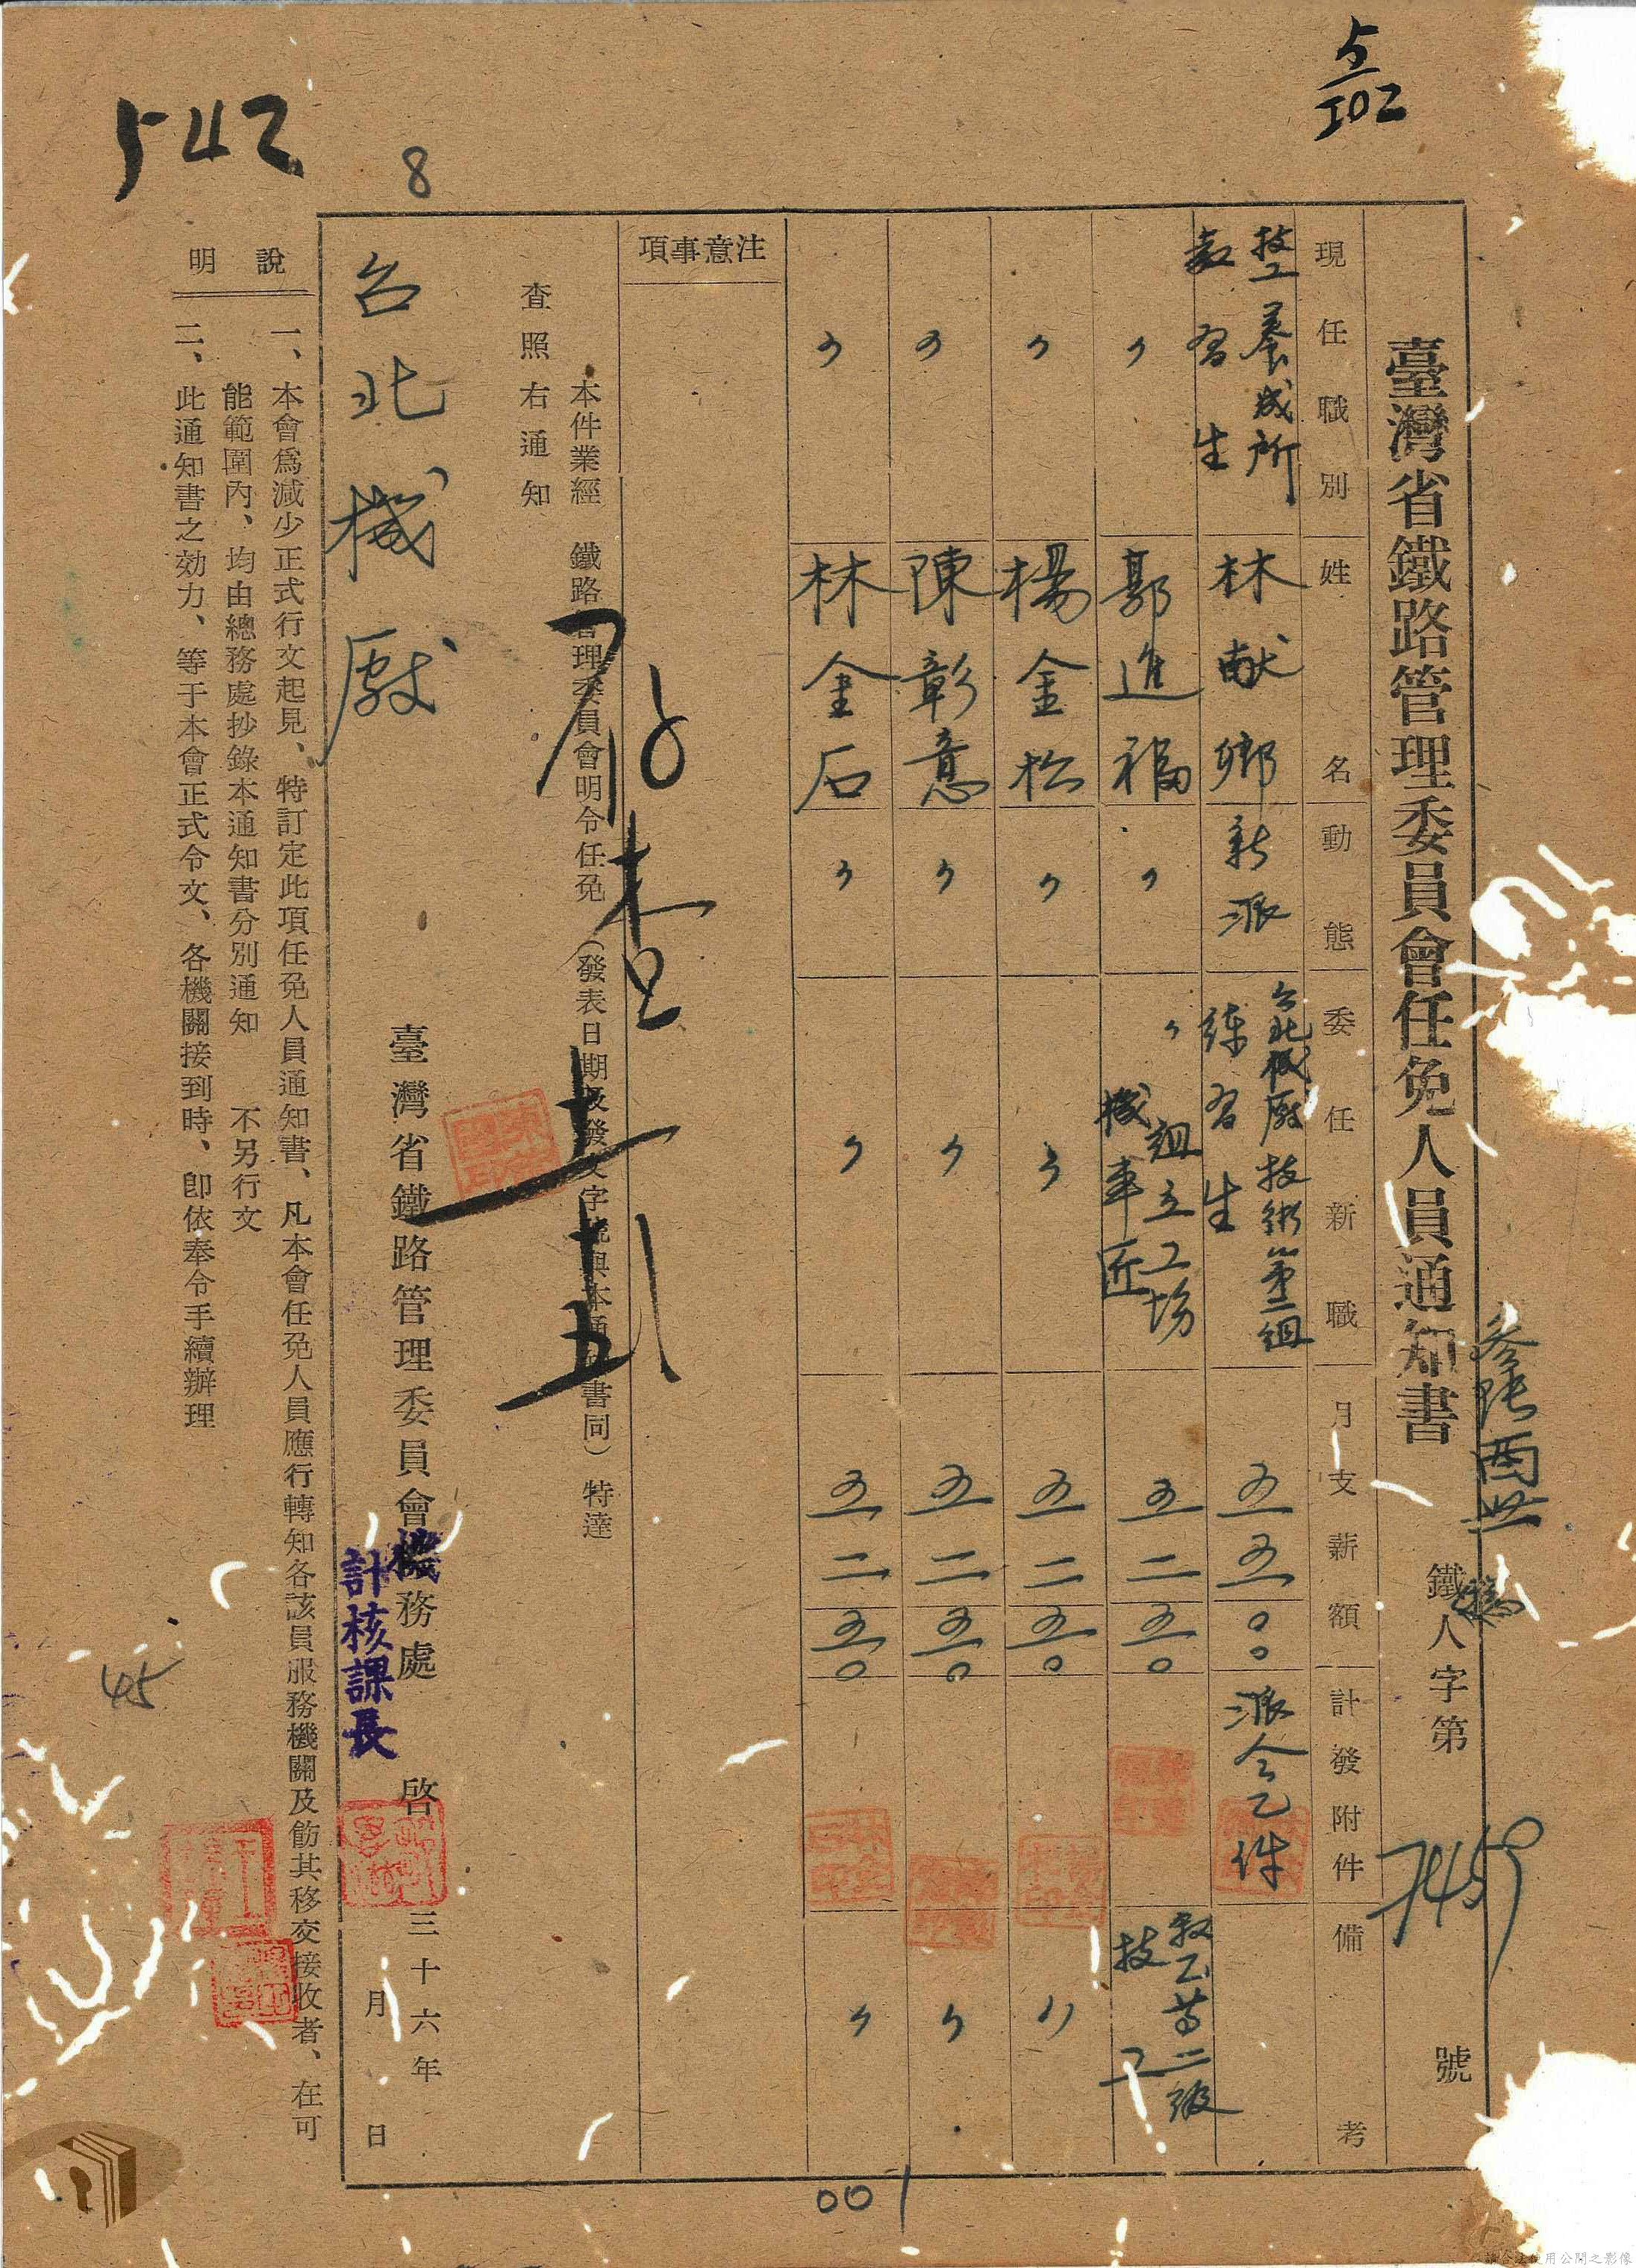 5/102
542
8
臺灣省鐵路管理委員會任免人員通知書
參張酉世
鐵人字第7459號
現任職別
姓名
動態
委任新職
月支薪額
計發附件
備考
技工養成所
教習生
林献鄉
新派
台北機厰技術第二組
練習生
五五〇〇
派令乙件
〃
郭進福
〃
〃組立工場
機車匠
五二五〇
敍乙等二級
技工
〃
楊金松
〃
〃
五二五〇
〃
〃
陳彰意
〃
〃
五二五〇
〃
〃
林金石
〃
〃
五二五〇
〃
注意事項
本件業經 鐵路管理委員會明令任免 (發表日期及發文字號與本通知書同) 特達
查照右通知
台北機厰
臺灣省鐵路管理委員會機務處 啓
計核課長
三十六年
月 日
說明
一、本會爲減少正式行文起見、特訂定此項任免人員通知書、凡本會任免人員應行轉知各該員服務機關及飭其移交接收者、在可
能範圍內、均由總務處抄錄本通知書分別通知 不另行文
二、此通知書之効力、等于本會正式令文、各機關接到時、卽依奉令手續辦理
45
001